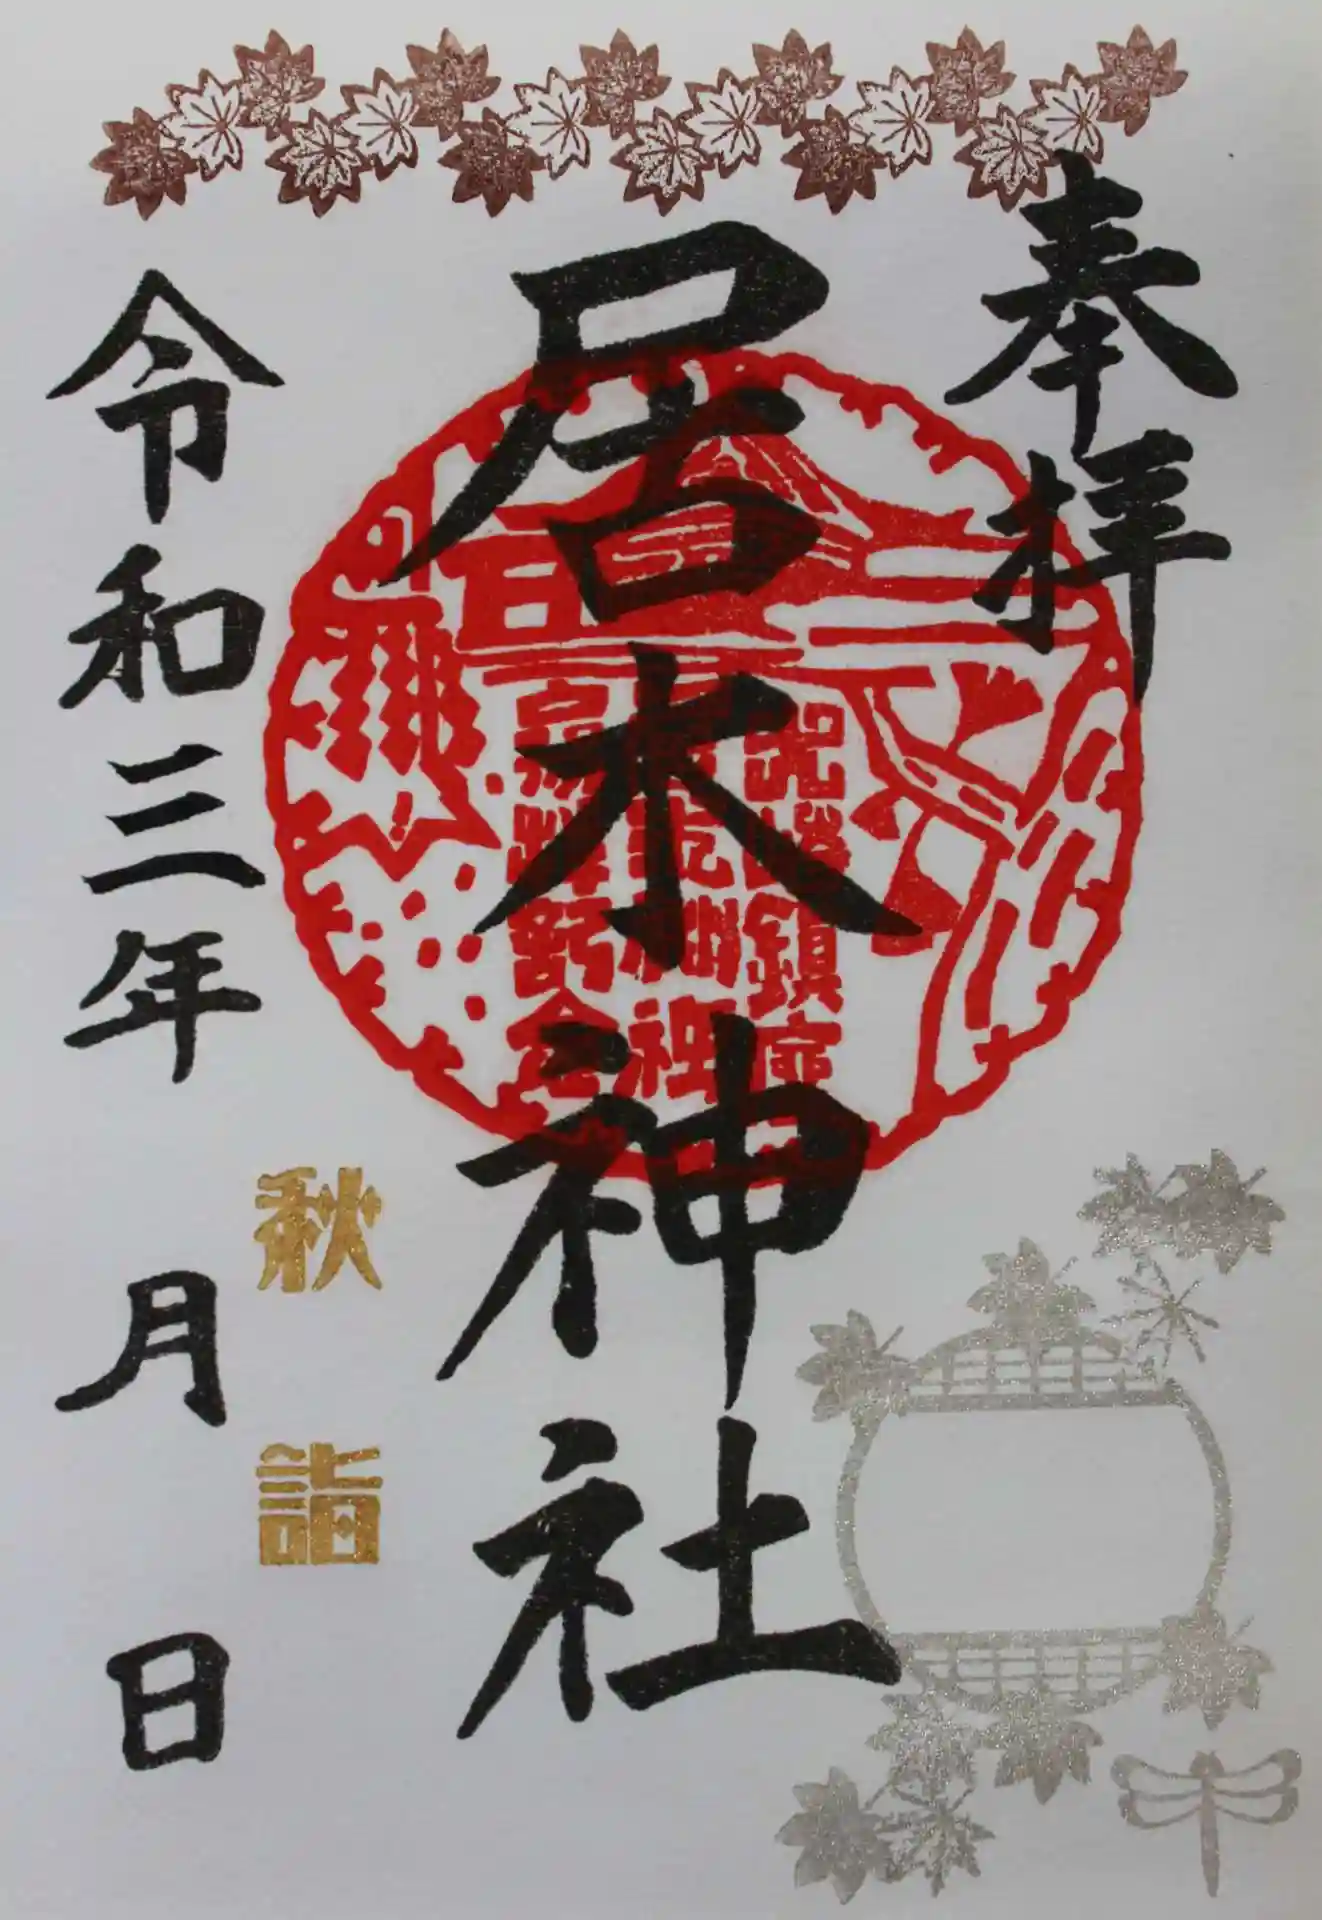 奉拝
居木神社
秋詣
令和三年 月 日